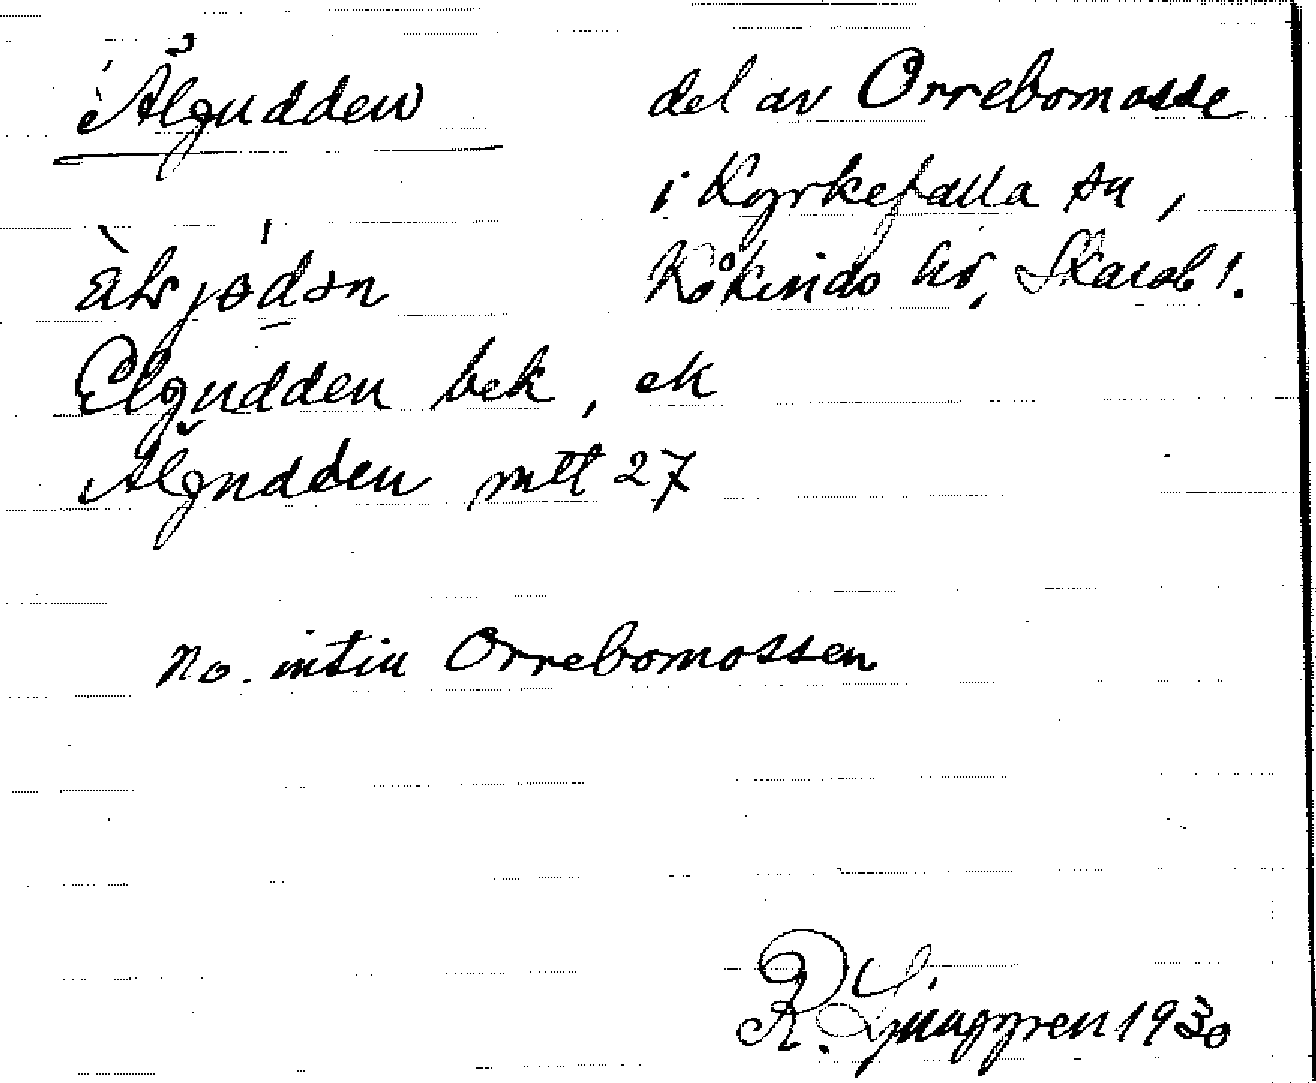 Älgudden
del av Orrebomosse
i Kyrkefalla sn,
Kåkinds hd, Skarab l.
Elgudden bek, ek
Älgudden mtt 27
no. intill Orrebomossen
R. Ljunggren 1930